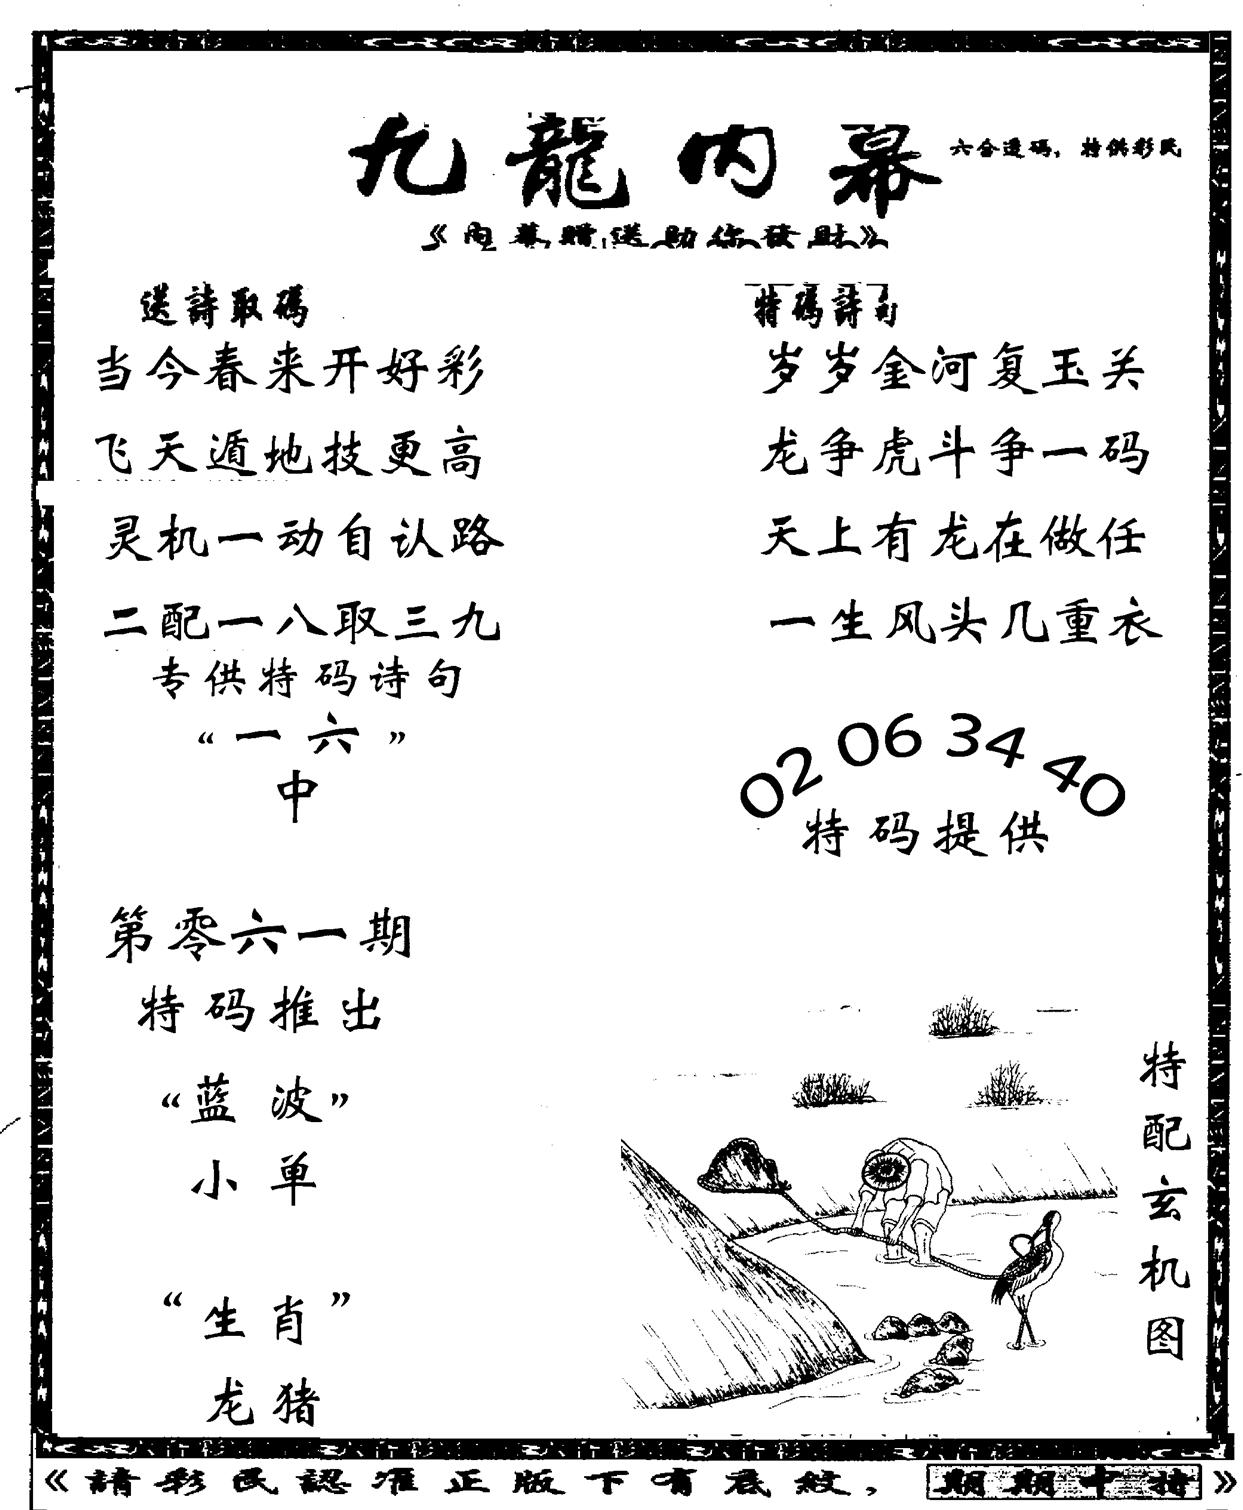 九龍内幕
六合透码，特供彩民
《内幕赠送助你發财》
送詩取碼
当今春来开好彩
飞天遁地技更高
灵机一动自认路
二配一八取三九
专供特码诗句
“一六”
中
特碼詩句
岁岁金河复玉关
龙争虎斗争一码
天上有龙在做任
一生风头几重衣
02 06 34 40
特码提供
第零六一期
特码推出
“蓝波”
小单
“生肖”
龙猪
特配玄机图
《請彩民認准正版下有底紋，期期中特》